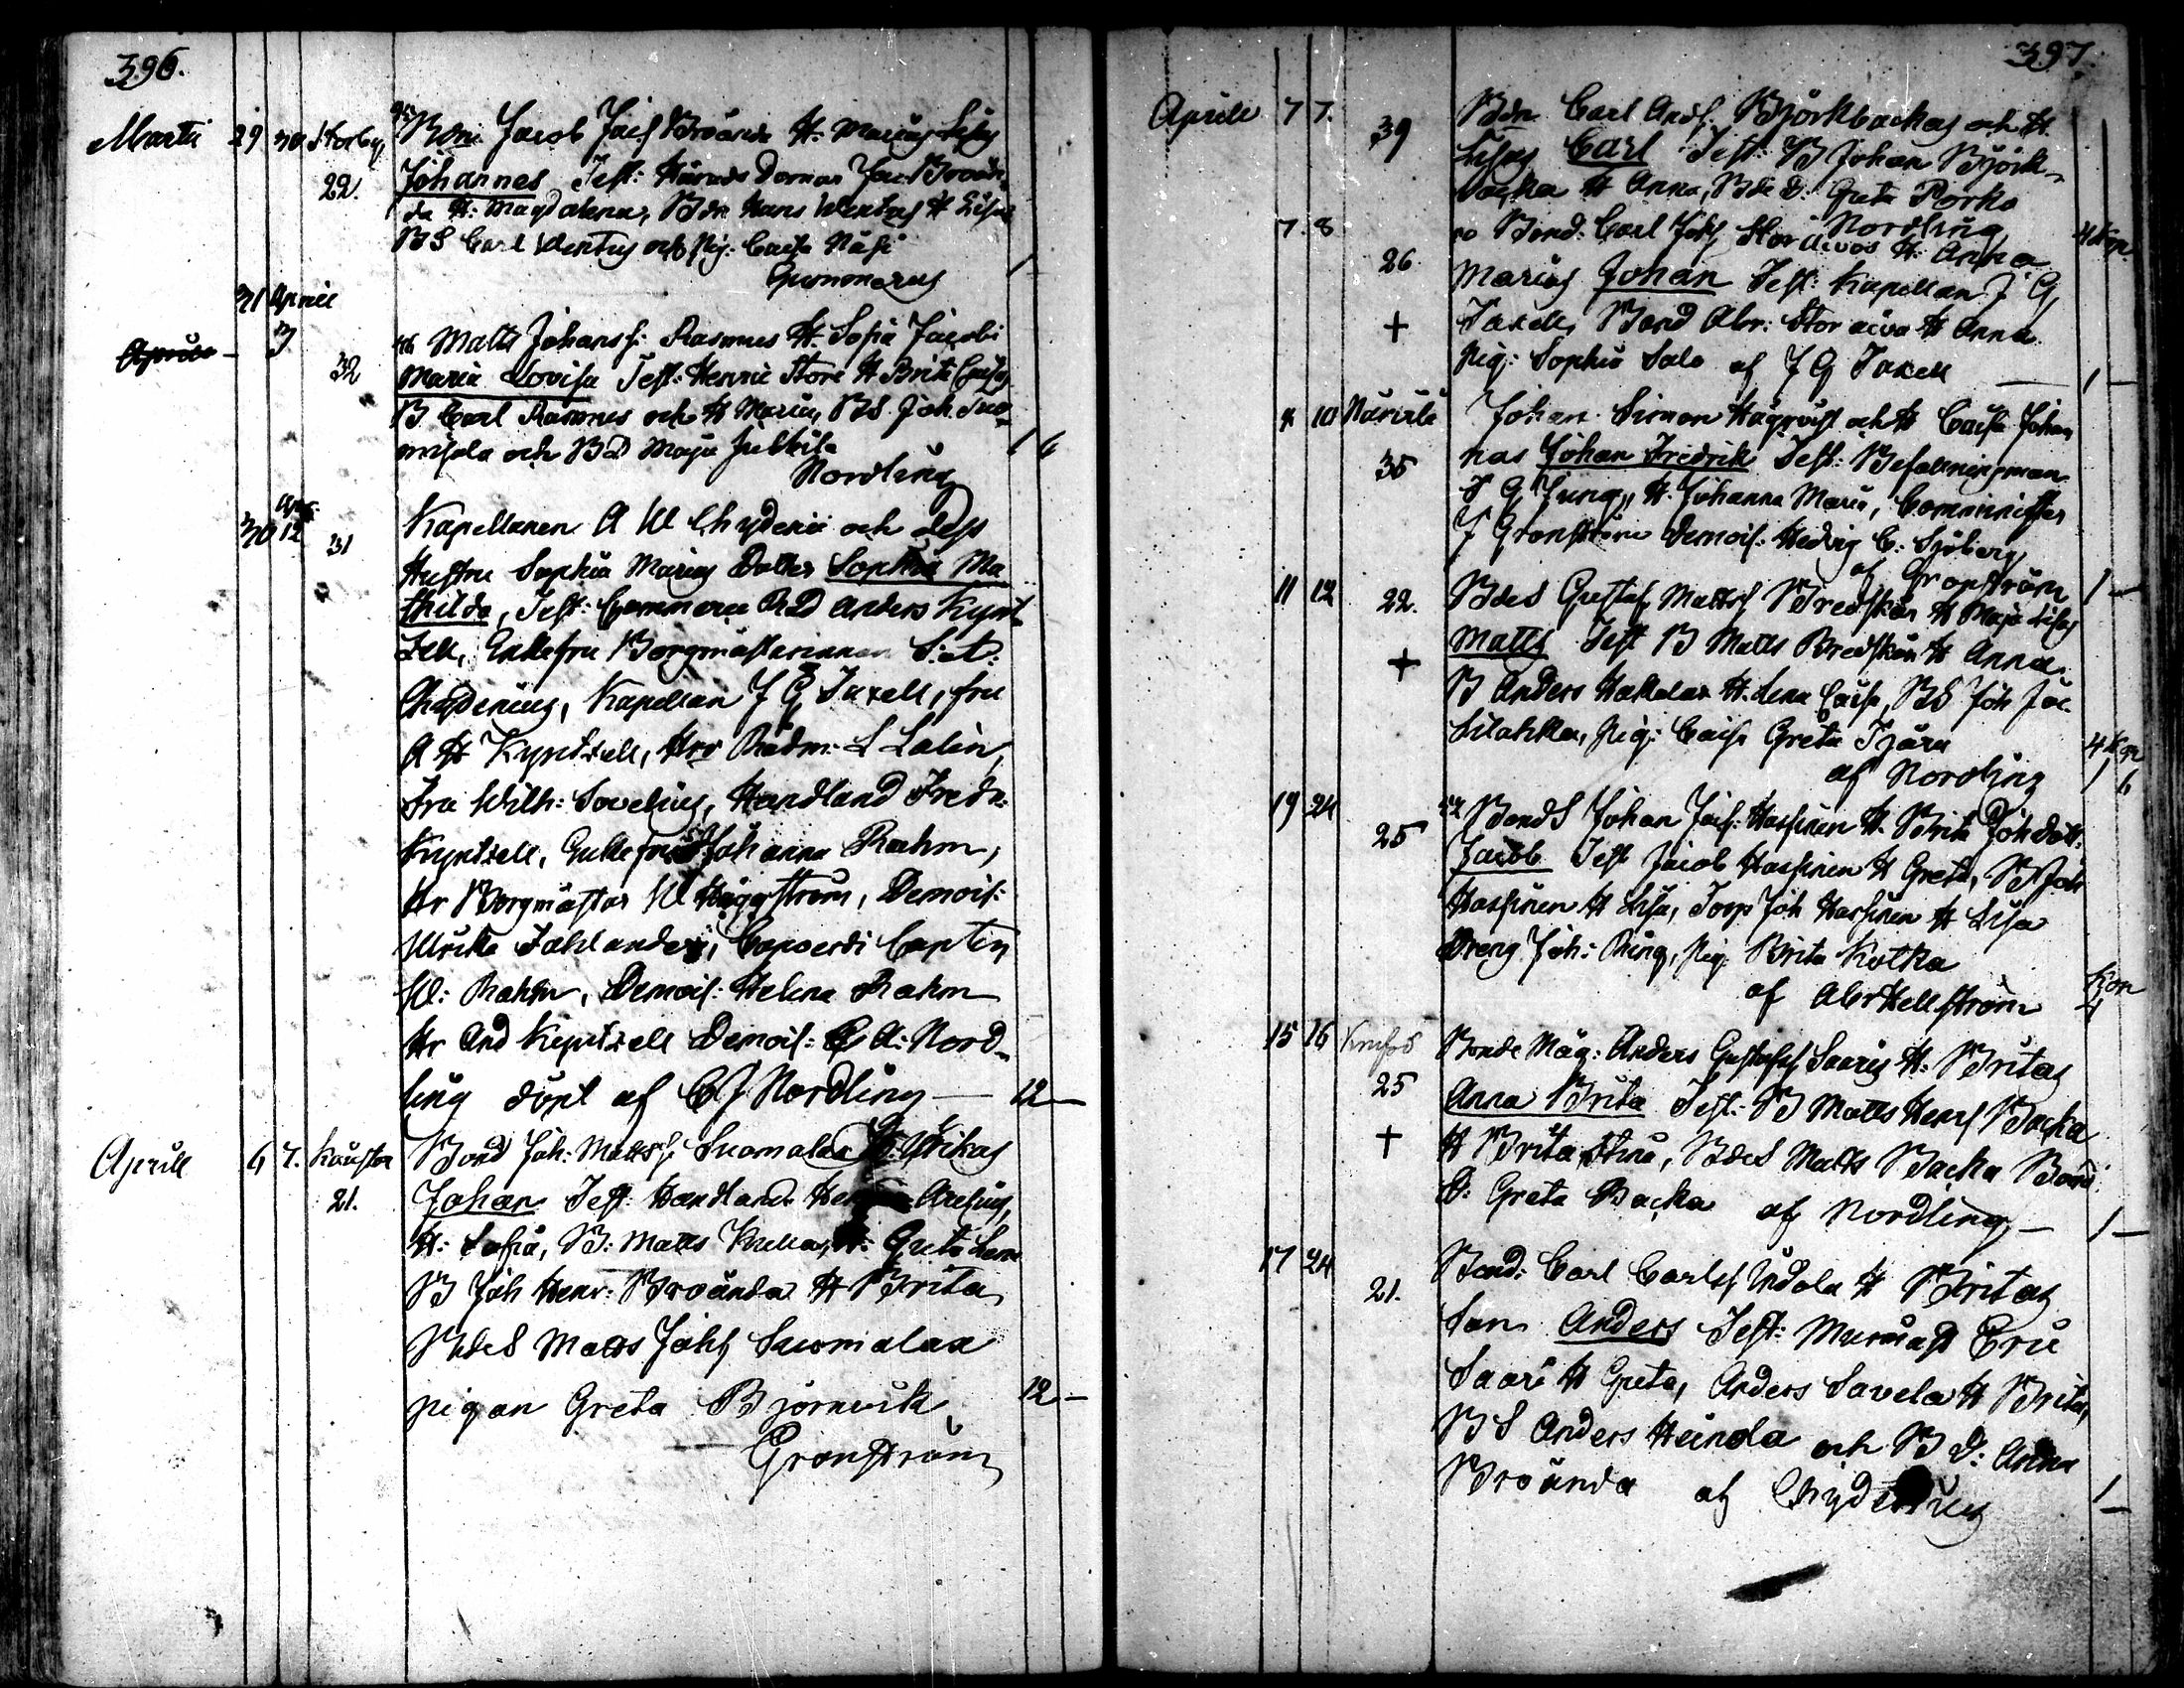 396.
Martii 29 30 Storby 45 Bdn Jacob Jacs Broända H. Marias Lisas
22. Johannes Test: Härads Domar Jac Broän-
da H: Magdalena, Bdn Hans Wentus H Lisa
BS Carl Wentus och Pig: Caisa Näsi
Gummerus 1
31 April
3 46 Matts Johanss: Rasmus H. Sofia Jacobi
32 Maria Lovisa Test: Henric Store H Brita Caisa
B Carl Rasmus och H Maria, BS. Joh Suo-
misala och BD Maja Jubkila 1 6
Nordling
30 Apr. 12 31 Kapellanen A W Chydenii och dess
Hustru Sophia Marias Dotter Sophia Ma
thilda, Test: Commerce RD Anders Kynt
zell, Enkefru Borgmästarinnan
Chydenius, Kapellan J G Taxell, fru
A H Kyntzell, Herr Rådm: L Lalin,
Fru Wilh: Sovelius, Handland Fredr:
Kyntzell, Enkefru Johanna Rahm,
Hr Borgmästar W Häggström, Demois:
Ulrika Fahlander, Capten
W: Rahm, Demois: Helena Rahm
Hr And Kyntzell Demois: C A: Nord-
ling döpt af C J Nordling — 12 —
Aprill 6 7. Kaustar Bond Joh: Mattss Suomalas H: Ulrikas
21. Johan Test: Handland
H: Sofia, B: Matts H: Greta Lena
B Joh Henr: Broända H Brita,
BdeS Matts Johs Suomalaa
pigan Greta Björnvik 12 —
Grönström
397.
Aprill 7 7. 39 Bdn Carl Ands: Björkbackas och H.
Lisas Carl Test: B Johan Björk-
backa H Anna, Bde D: Greta Porko
Nordling 4 Kpr
7. 8 50 Bond: Carl Johs Storåivos H: Anna
26 Marias Johan Test: Kapellan J G,
+ Taxell, Bond Abr: Storåivo H Anna
Pig: Sophia Salo af J G Taxell — 1 —
8 10 Närvilä Johan Simon Hägqvist och H Caisa Johan
35 nas Johan Fredrik Test: Befallningsman
J G Ljung, H. Johanna Maria, Comminister
J Grönström Demois: Hedvig C: Sjöberg,
af Grönström 1 —
11 12 22. BdeS Gustaf Mattss Bredskär H Maja Lisas
Matts Test B Matts Bredskär H Anna
+ B Anders Hakalax H. Lena Caisa, BS Joh Jac
Silahka, Pig: Caisa Greta Tjäru 4 Kpr
af Nordling 1 6
19 24 52 BondS Johan Jacs: Hassinen H. Brita Joh dott:
25 Jacob Test Jacob Hassinen H Greta, B Joh
Hassinen H Lisa, Torp Joh Hassinen H Lisa
Dreng Joh: Ring, Pig: Brita Kotka
af Abr Hellström Kpr 4
15 16 Bonde Måg: Anders Gustafss Saaris H: Britas
25 Anna Brita Test: B Matts Henrs Backa
+ H Brita Stina, BdeS Matts Backa Bond
D: Greta Backa af Nordling — 1 —
17 24 Bond: Carl Carlss Indola H Britas
21. Son Anders Test: Murmäst Eric
Saari H Greta, Anders Savela H Brita,
BS Anders Heinola och B D: Anna
Broända af Chydenius 1 —